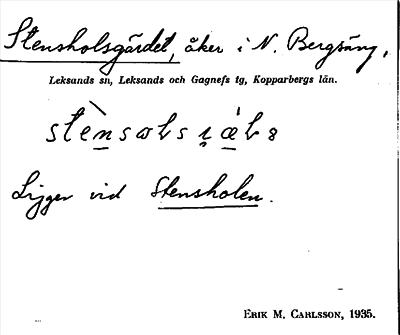 Stensholsgärdet, åker i N. Bergsäng,
Leksands sn, Leksands och Gagnefs tg, Kopparbergs län.
Ligger vid Stensholen.
ERIK M. CARLSSON, 1935.